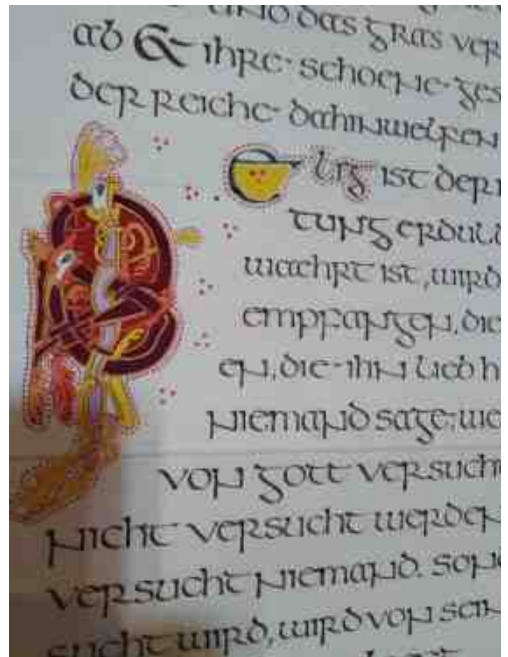 und das gras ver
ab & ihre schoene ges
der reiche dahinwelken
elig ist der
tung erduld
waehrt ist, wird
empfangen, die
en, die ihn lieb h
niemand sage: we
von gott versucht
nicht versucht werden
versucht niemand. son
sucht wird, wird von sein